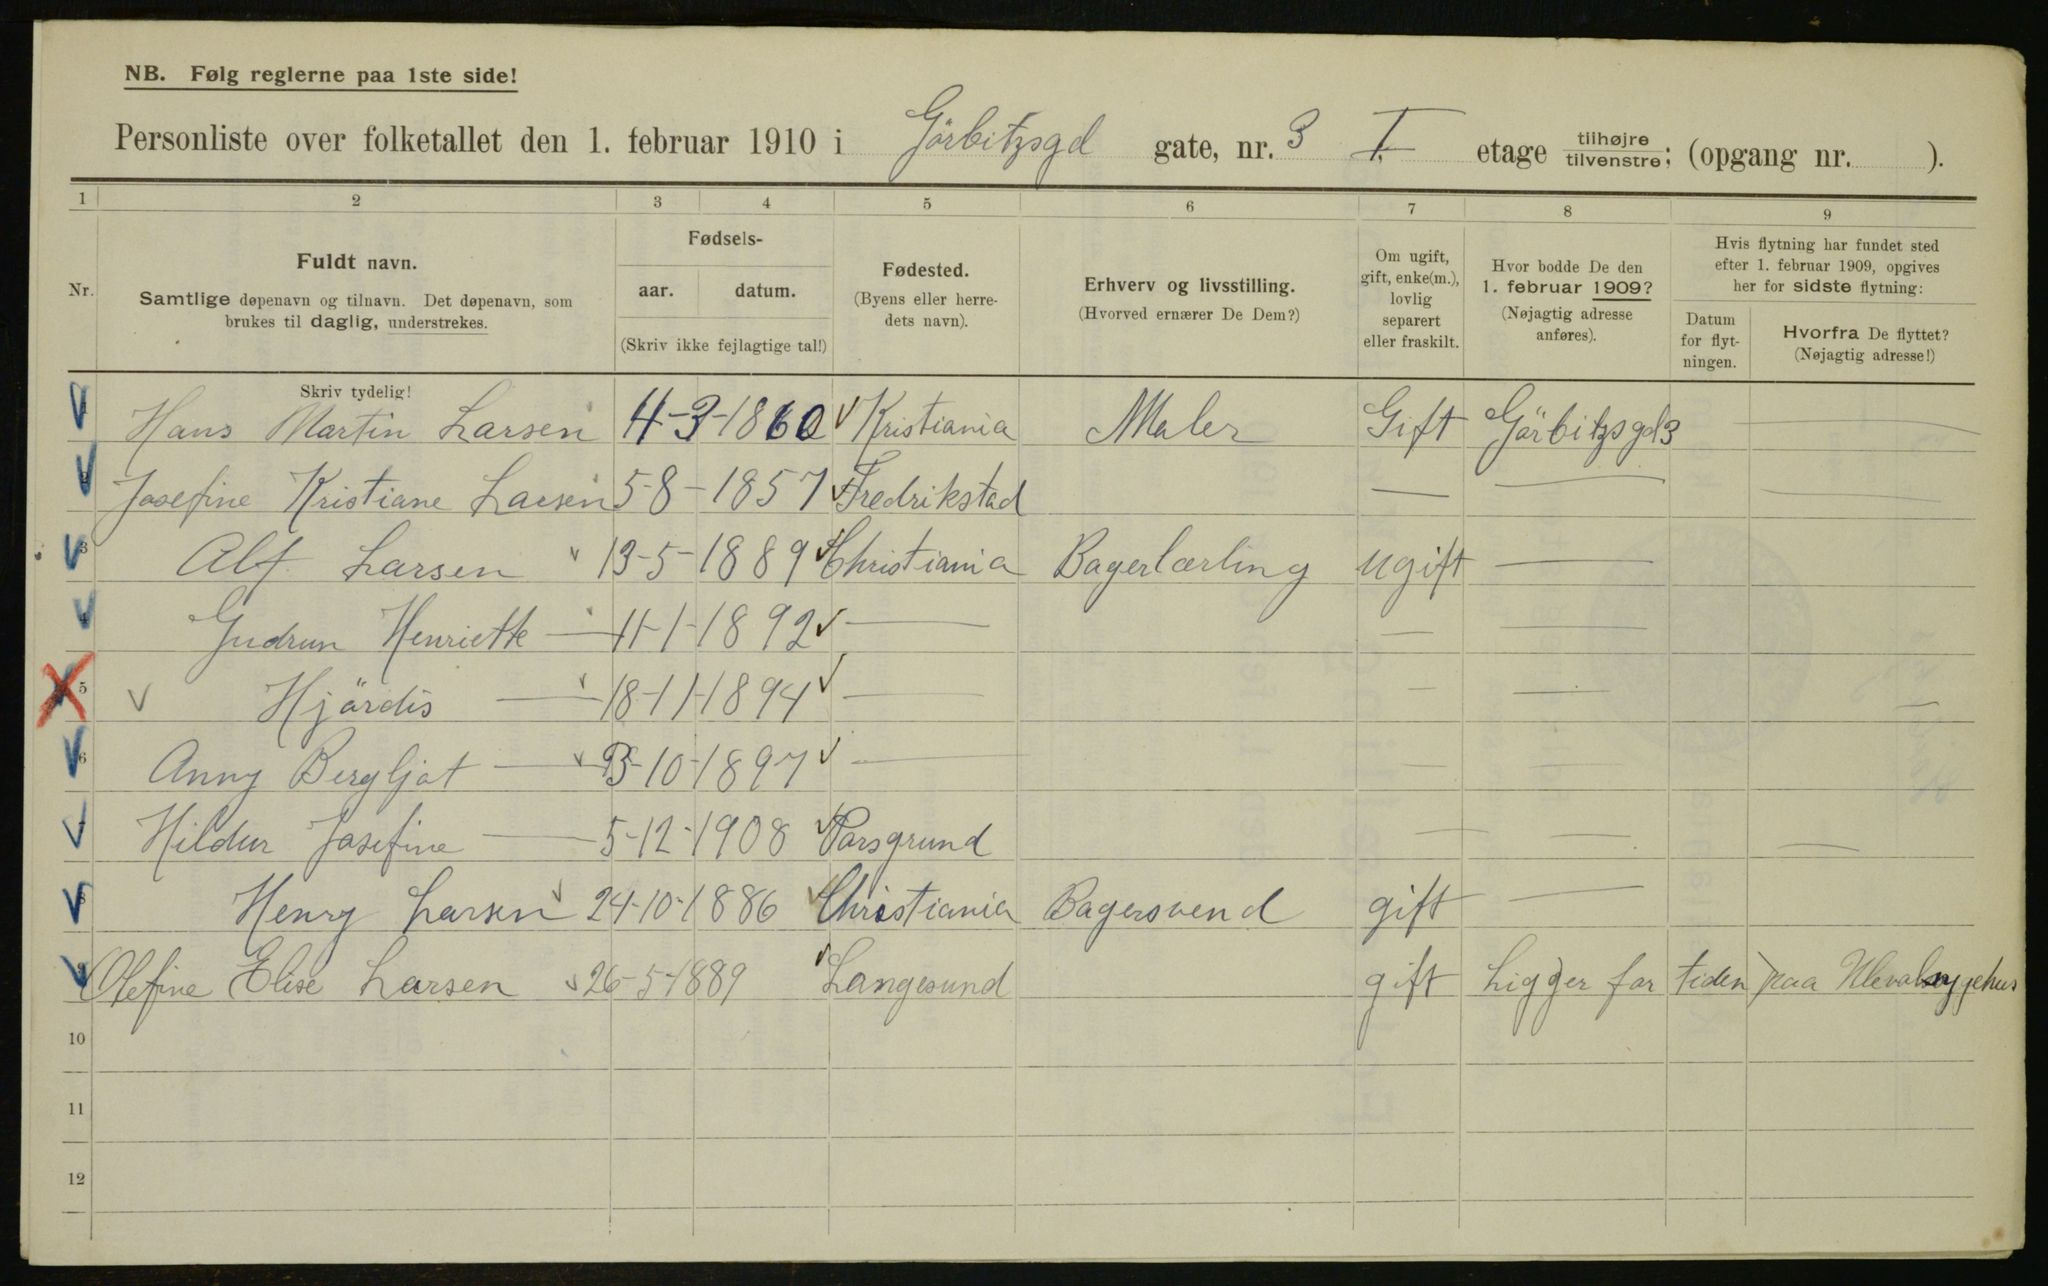 NB. Følg reglerne paa 1ste side!
Personliste over folketallet den 1. februar 1910 i Görbitzsgd gate, nr. 3 I etage tilhøjre/tilvenstre; (opgang nr. ).
1 2 3 4 5 6 7 8 9
Nr.
Fuldt navn.
Samtlige døpenavn og tilnavn. Det døpenavn, som
brukes til daglig, understrekes.
Skriv tydelig!
Fødsels-
aar. datum.
(Skriv ikke fejlagtige tal!)
Fødested.
(Byens eller herre-
dets navn).
Erhverv og livsstilling.
(Hvorved ernærer De Dem?)
Om ugift,
gift, enke(m.),
lovlig
separert
eller fraskilt.
Hvor bodde De den
1. februar 1909?
(Nøjagtig adresse
anføres).
Hvis flytning har fundet sted
efter 1. februar 1909, opgives
her for sidste flytning:
Datum
for flyt-
ningen.
Hvorfra De flyttet?
(Nøjagtig adresse!)
Hans Martin Larsen 4-3-1860 Kristiania Maler Gift Görbitzsgd 3 —
2 Josefine Kristiane Larsen 5-8-1857 Fredrikstad — — —
3 Alf Larsen 13-5-1889 Christiania Bagerlærling ugift —
4 Gudrun Henriette — 11-1-1892 — — —
5 Hjördis — 18-11-1894 — — — —
6 Anny Bergljot — 3-10-1897 — — —
7 Hildur Josefine — 5-12-1908 Porsgrund — — —
8 Henry Larsen 24-10-1886 Christiania Bagersvend gift —
9 Olefine Elise Larsen 26-5-1889 Langesund gift Ligger for tiden paa Ulevalsygehus
10
11
12